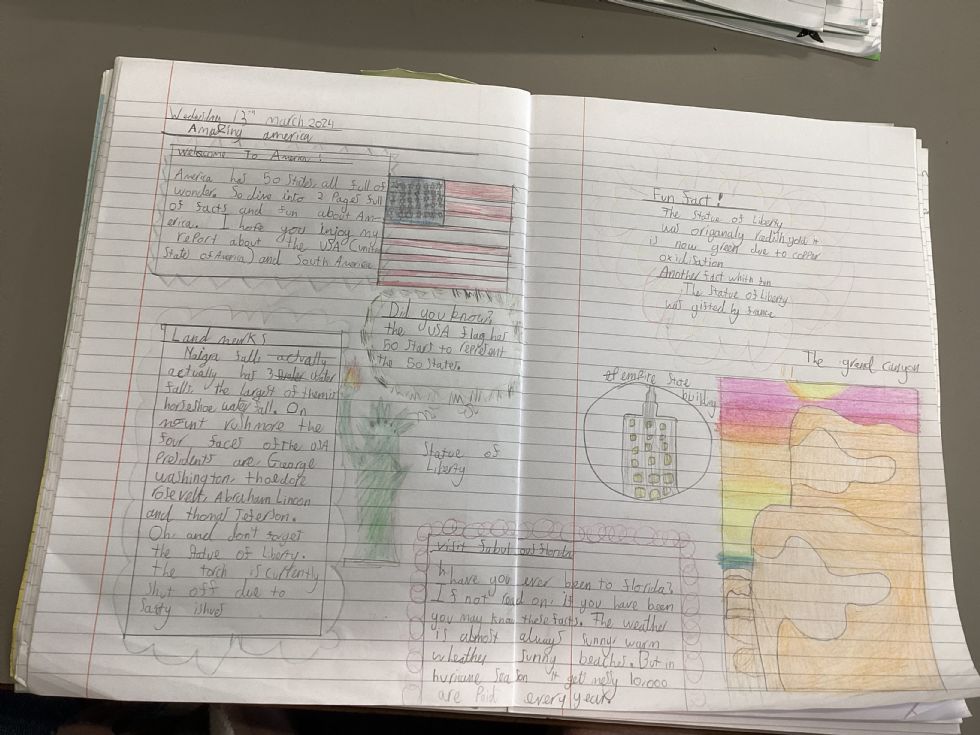 Wedesday 13th march 2024
Amazing america
Welcome To America!
America has 50 States, all full of
wonder. So dive into 2 Pages full
of facts and fun about Am-
erica. I hope you enjoy my
report about the USA (united
State of America) and South America
Did you know?
the USA flag has
50 stars to represent
the 50 states.
Land merks
falls actually
actually has 3 water
falls, the largest of them is
horseshoe water fall. On
mount rushmore the
four faces of the USA
Presidents are, George
washington, thoedore
rosevelt, Abraham Lincon
and thomas Jeferson.
Oh, and don't forget
the statue of Liberty.
the torch is curtently
shut off due to
safty ishues
Statue of
Liberty
Fun fact!
The statue of Liberty
was origanaly redish gold it
is now green due to copper
oxidilisation
Another fact whith fun
The statue of Liberty
was gifted by france
The grand canyon
empire state
building
visit florida
hi
have you ever been to florida?
If not read on, if you have been
you may know these facts. The weather
is almost always sunny warm
wheather sunny beaches. But in
huricane season it gets 10,000
are Paid every year